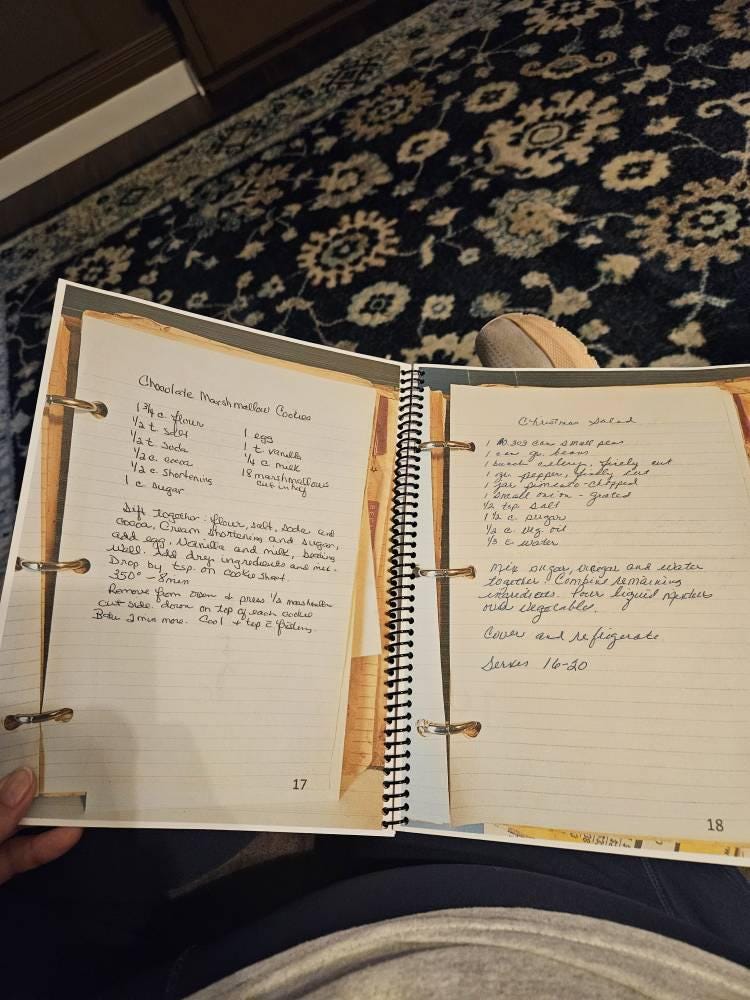 Chocolate Marshmallow Cookies
1 3/4 c. flour
1/2 t. salt
1/2 t. soda
1/2 c. cocoa
1/2 c. shortening
1 c. sugar
1 egg
1 t. vanilla
1/4 c. milk
18 marshmallows
cut in half
Sift together: flour, salt, soda and
cocoa, Cream shortening and sugar,
add egg, vanilla and milk, beating
well. Add dry ingredients and mix.
Drop by tsp. on cookie sheet.
350° - 8 min
Remove from oven & press 1/2 marshmallow
cut side down on top of each cookie
Bake 2 min more. Cool & top c̄ frosting.
17
Christmas Salad
1 no. 303 can small peas
1 can gr. beans
1 bunch celery, finely cut
1 gr. pepper, finely cut
1 jar pimento - chopped
1 small onion - grated
1/2 tsp salt
1 1/2 c. sugar
1/2 c. veg. oil
1/3 c. water
Mix sugar, vinegar and water
together. Combine remaining
ingredients. Pour liquid mixture
over vegetables.
Cover and refrigerate
Serves 16-20
18